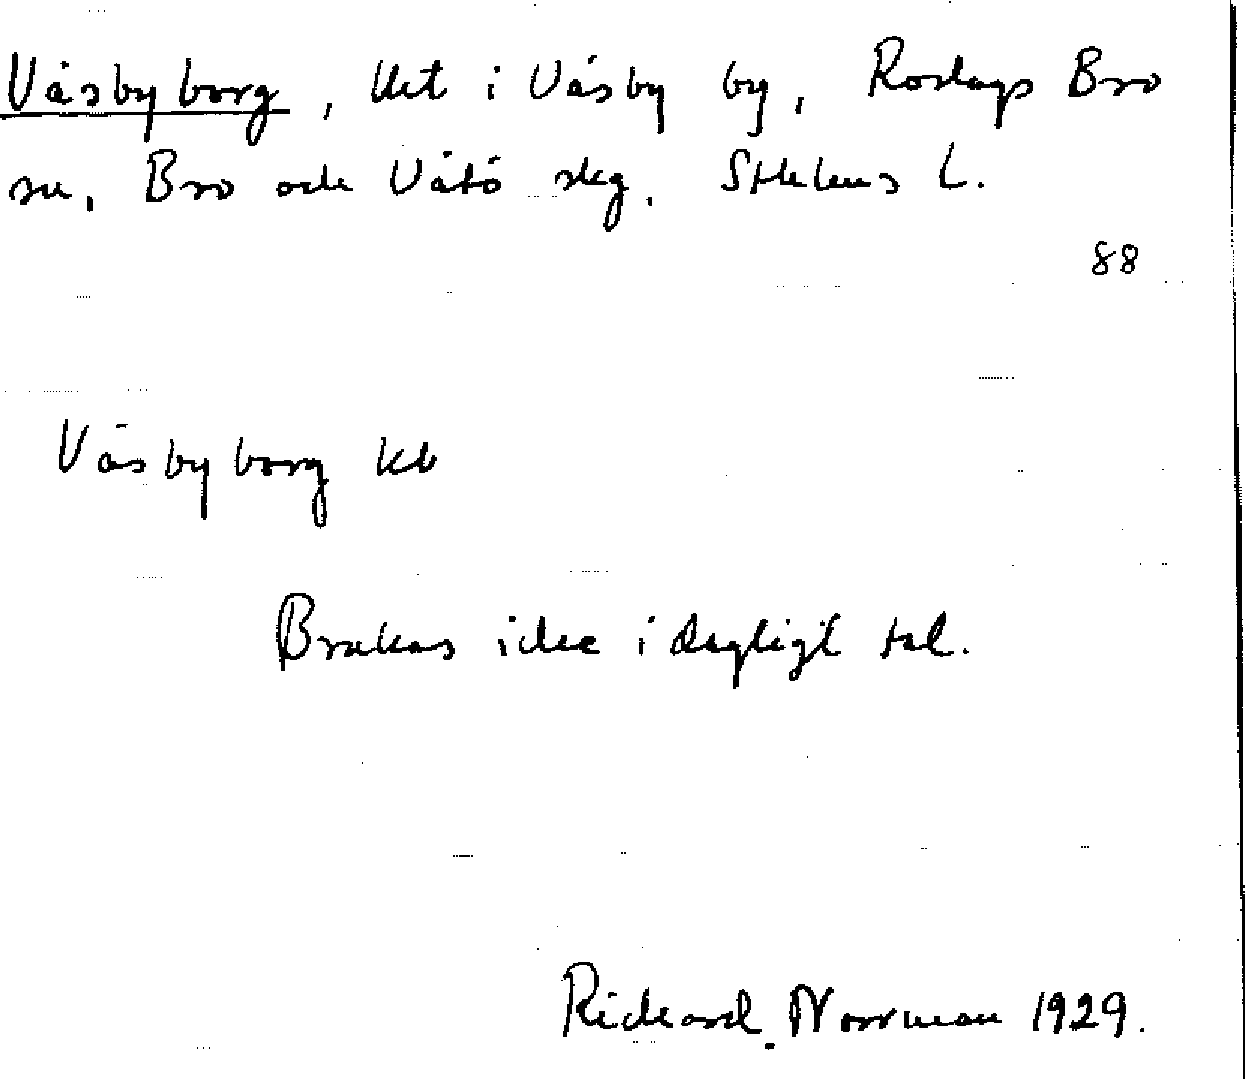 Väsbyborg, lht i Väsby by, Roslags Bro
sn, Bro och Vätö skg. Sthlms L.
88
Väsbyborg kb
Brukas icke i dagligt tal.
Rickard Norrman 1929.